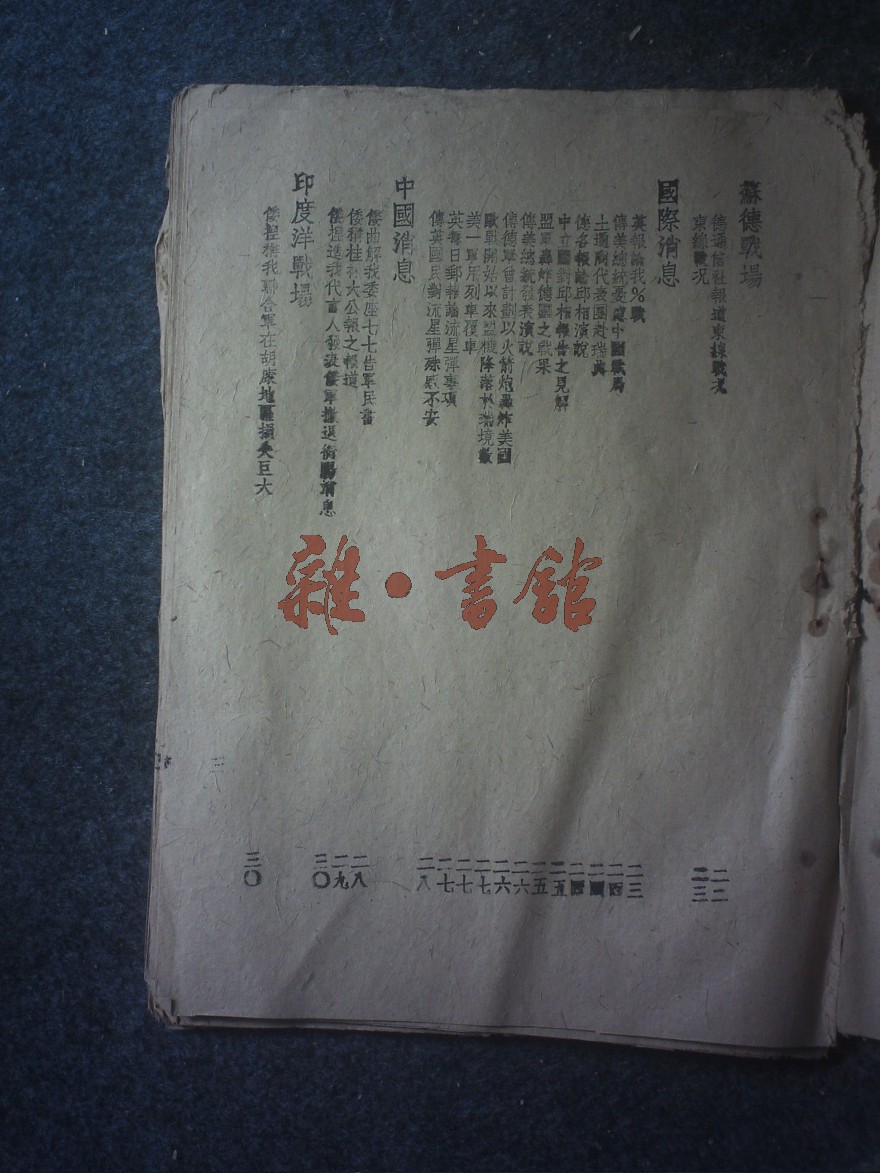 蘇德戰場
德通信社報道東線戰况 二二
東線戰况 二三
國際消息
英報論我%戰 二三
傳美總統憂慮中國戰局 二四
土通商代表團赴瑞典 二四
德各報論邱相演說 二四
中立國對邱相報告之見解 二五
盟軍轟炸德國之戰果 二五
傳美總統發表演說 二六
傳德軍曾計劃以火箭炮轟炸美國 二六
歐戰開始以來盟機降落於瑞境數 二七
美一軍用列車覆車 二七
英每日郵報論流星彈事項 二七
傳英國民對流星彈殊感不安 二八
中國消息
倭曲解我委座七七告軍民書 二八
倭稱桂林大公報之報道 二九
倭捏造我代言人發表倭軍撤退衡陽消息 三〇
印度洋戰場
倭捏稱我聯合軍在胡康地區損失巨大 三〇
三
雜·書館